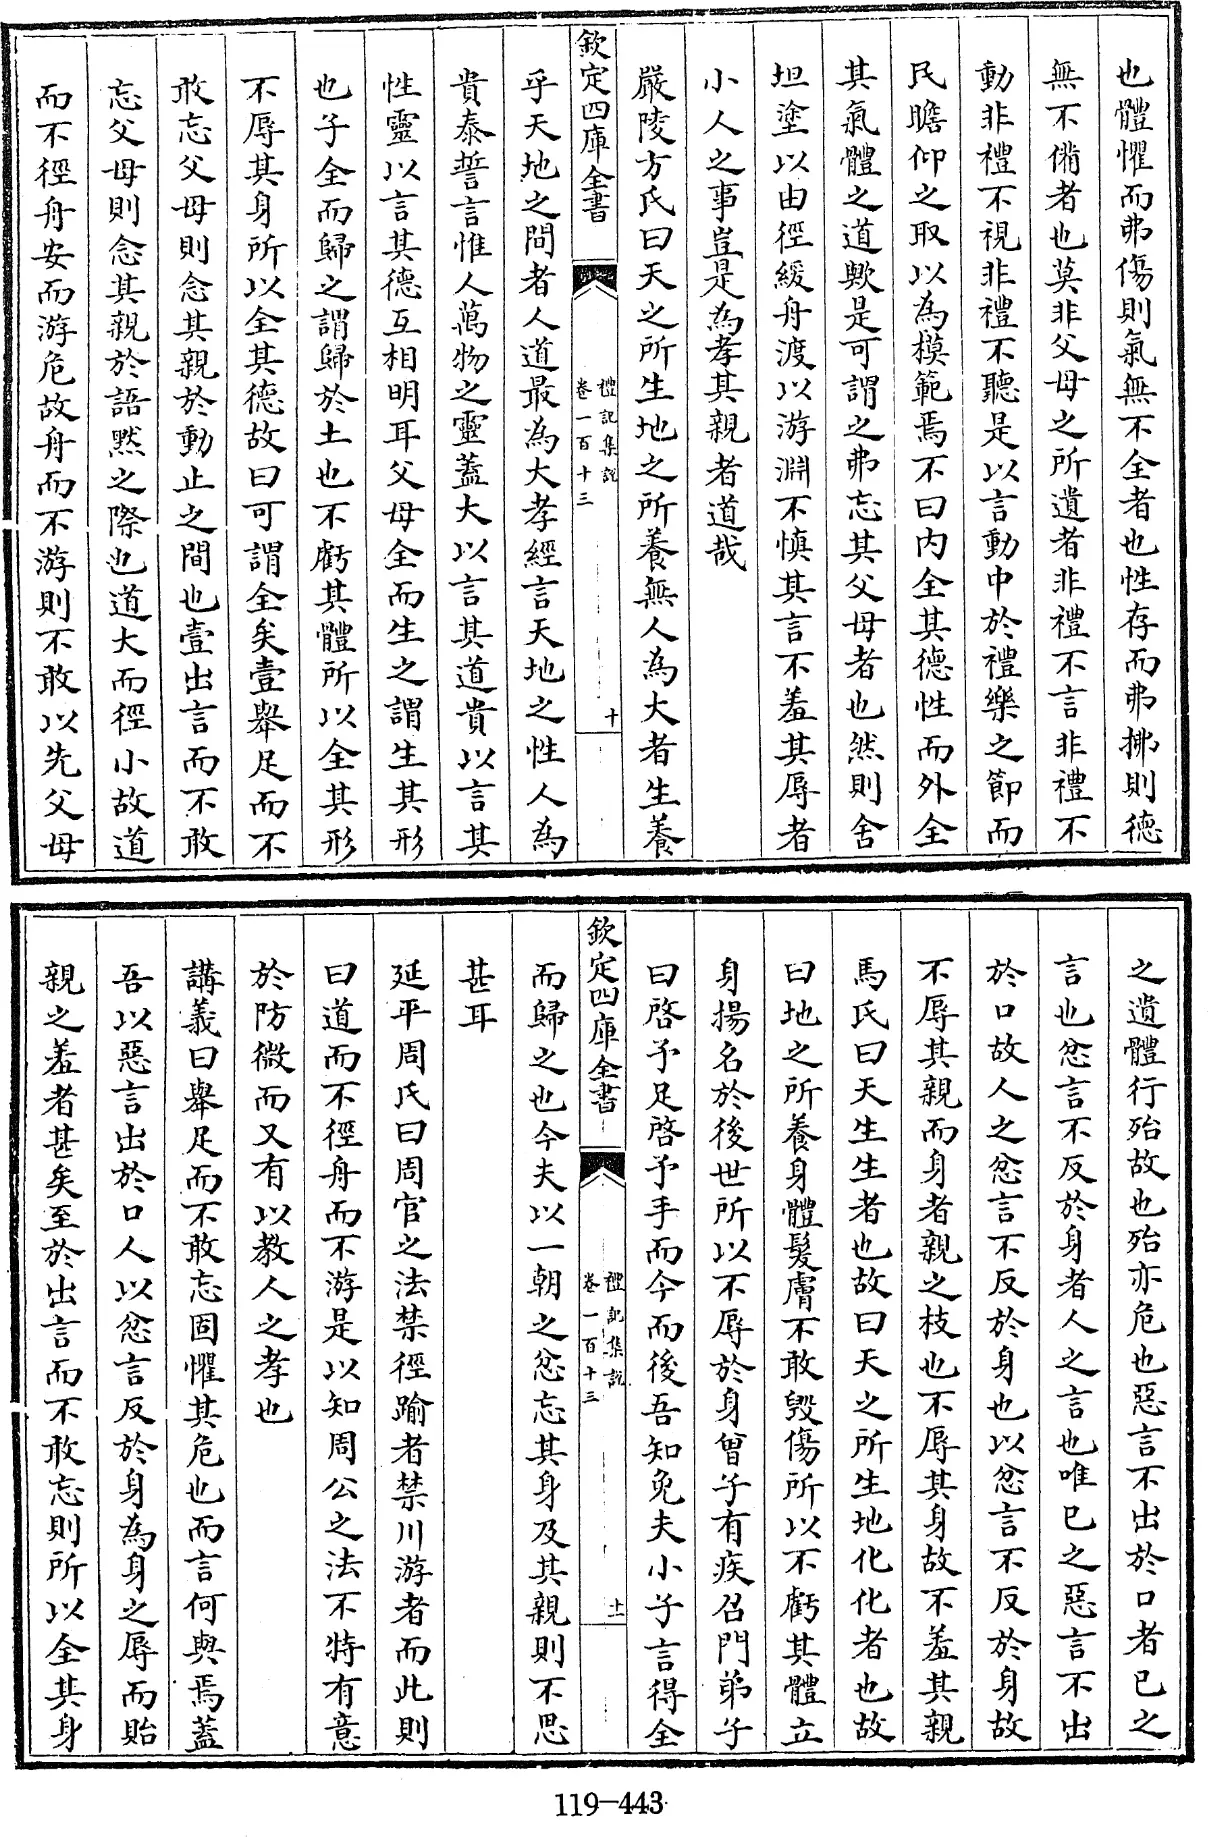 也體懼而弗傷則氣無不全者也性存而弗拂則德
無不備者也莫非父母之所遺者非禮不言非禮不
動非禮不視非禮不聽是以言動中於禮樂之節而
民瞻仰之取以為模範焉不曰内全其德性而外全
其氣體之道歟是可謂之弗忘其父母者也然則舍
坦塗以由徑緩舟渡以游淵不慎其言不羞其辱者
小人之事豈是為孝其親者道哉
嚴陵方氏曰天之所生地之所養無人為大者生養
欽定四庫全書
禮記集說
卷一百十三
十
乎天地之間者人道最為大孝經言天地之性人為
貴泰誓言惟人萬物之靈蓋大以言其道貴以言其
性靈以言其德互相明耳父母全而生之謂生其形
也子全而歸之謂歸於土也不虧其體所以全其形
不辱其身所以全其德故曰可謂全矣壹舉足而不
敢忘父母則念其親於動止之間也壹出言而不敢
忘父母則念其親於語黙之際也道大而徑小故道
而不徑舟安而游危故舟而不游則不敢以先父母
之遺體行殆故也殆亦危也惡言不出於口者已之
言也忿言不反於身者人之言也唯已之惡言不出
於口故人之忿言不反於身也以忿言不反於身故
不辱其親而身者親之枝也不辱其身故不羞其親
馬氏曰天生生者也故曰天之所生地化化者也故
曰地之所養身體髮膚不敢毀傷所以不虧其體立
身揚名於後世所以不辱於身曾子有疾召門弟子
曰啓予足啓予手而今而後吾知免夫小子言得全
欽定四庫全書
禮記集說
卷一百十三
十一
而歸之也今夫以一朝之忿忘其身及其親則不思
甚耳
延平周氏曰周官之法禁徑踰者禁川游者而此則
曰道而不徑舟而不游是以知周公之法不特有意
於防微而又有以教人之孝也
講義曰舉足而不敢忘固懼其危也而言何與焉蓋
吾以惡言出於口人以忿言反於身為身之辱而貽
親之羞者甚矣至於出言而不敢忘則所以全其身
119-443